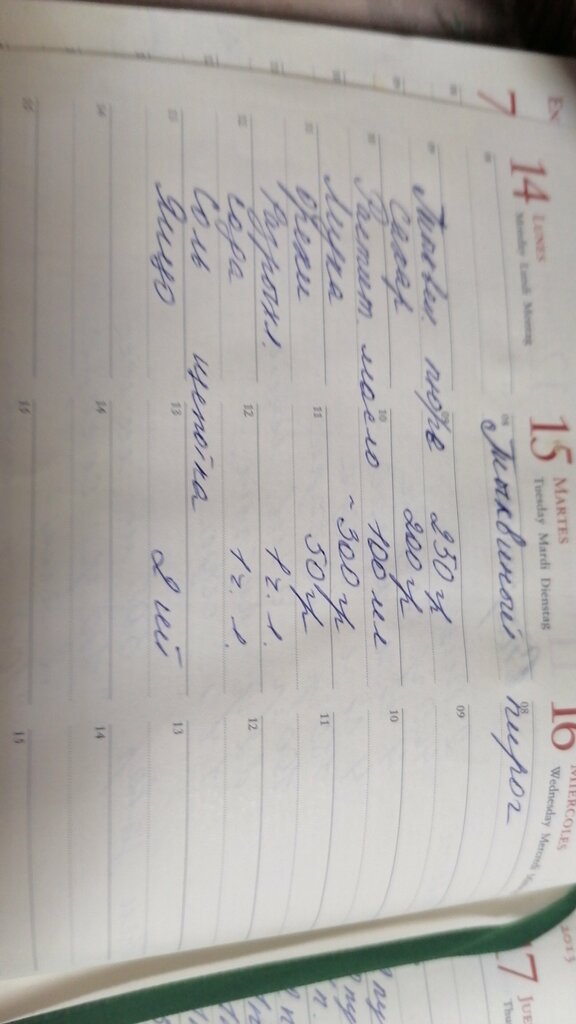 En
7
14 LUNES
Monday Lundi Montag
15 MARTES
Tuesday Mardi Dienstag
16 MIÉRCOLES
Wednesday
2013
17 JUE
Тыквенный пирог
Тыквен. пюре 250 гр
Сахар 200 гр
Растит. масло 100 мл
Мука ~300 гр
Орехи 50 гр
Разрыхл. 1 ч. л.
Сода 1 ч. л.
Соль щепотка
Яйцо 2 шт
08 08
09 09
10 10 10
11 11 11
12 12 12
13 13 13
14 14 14
15 15 15